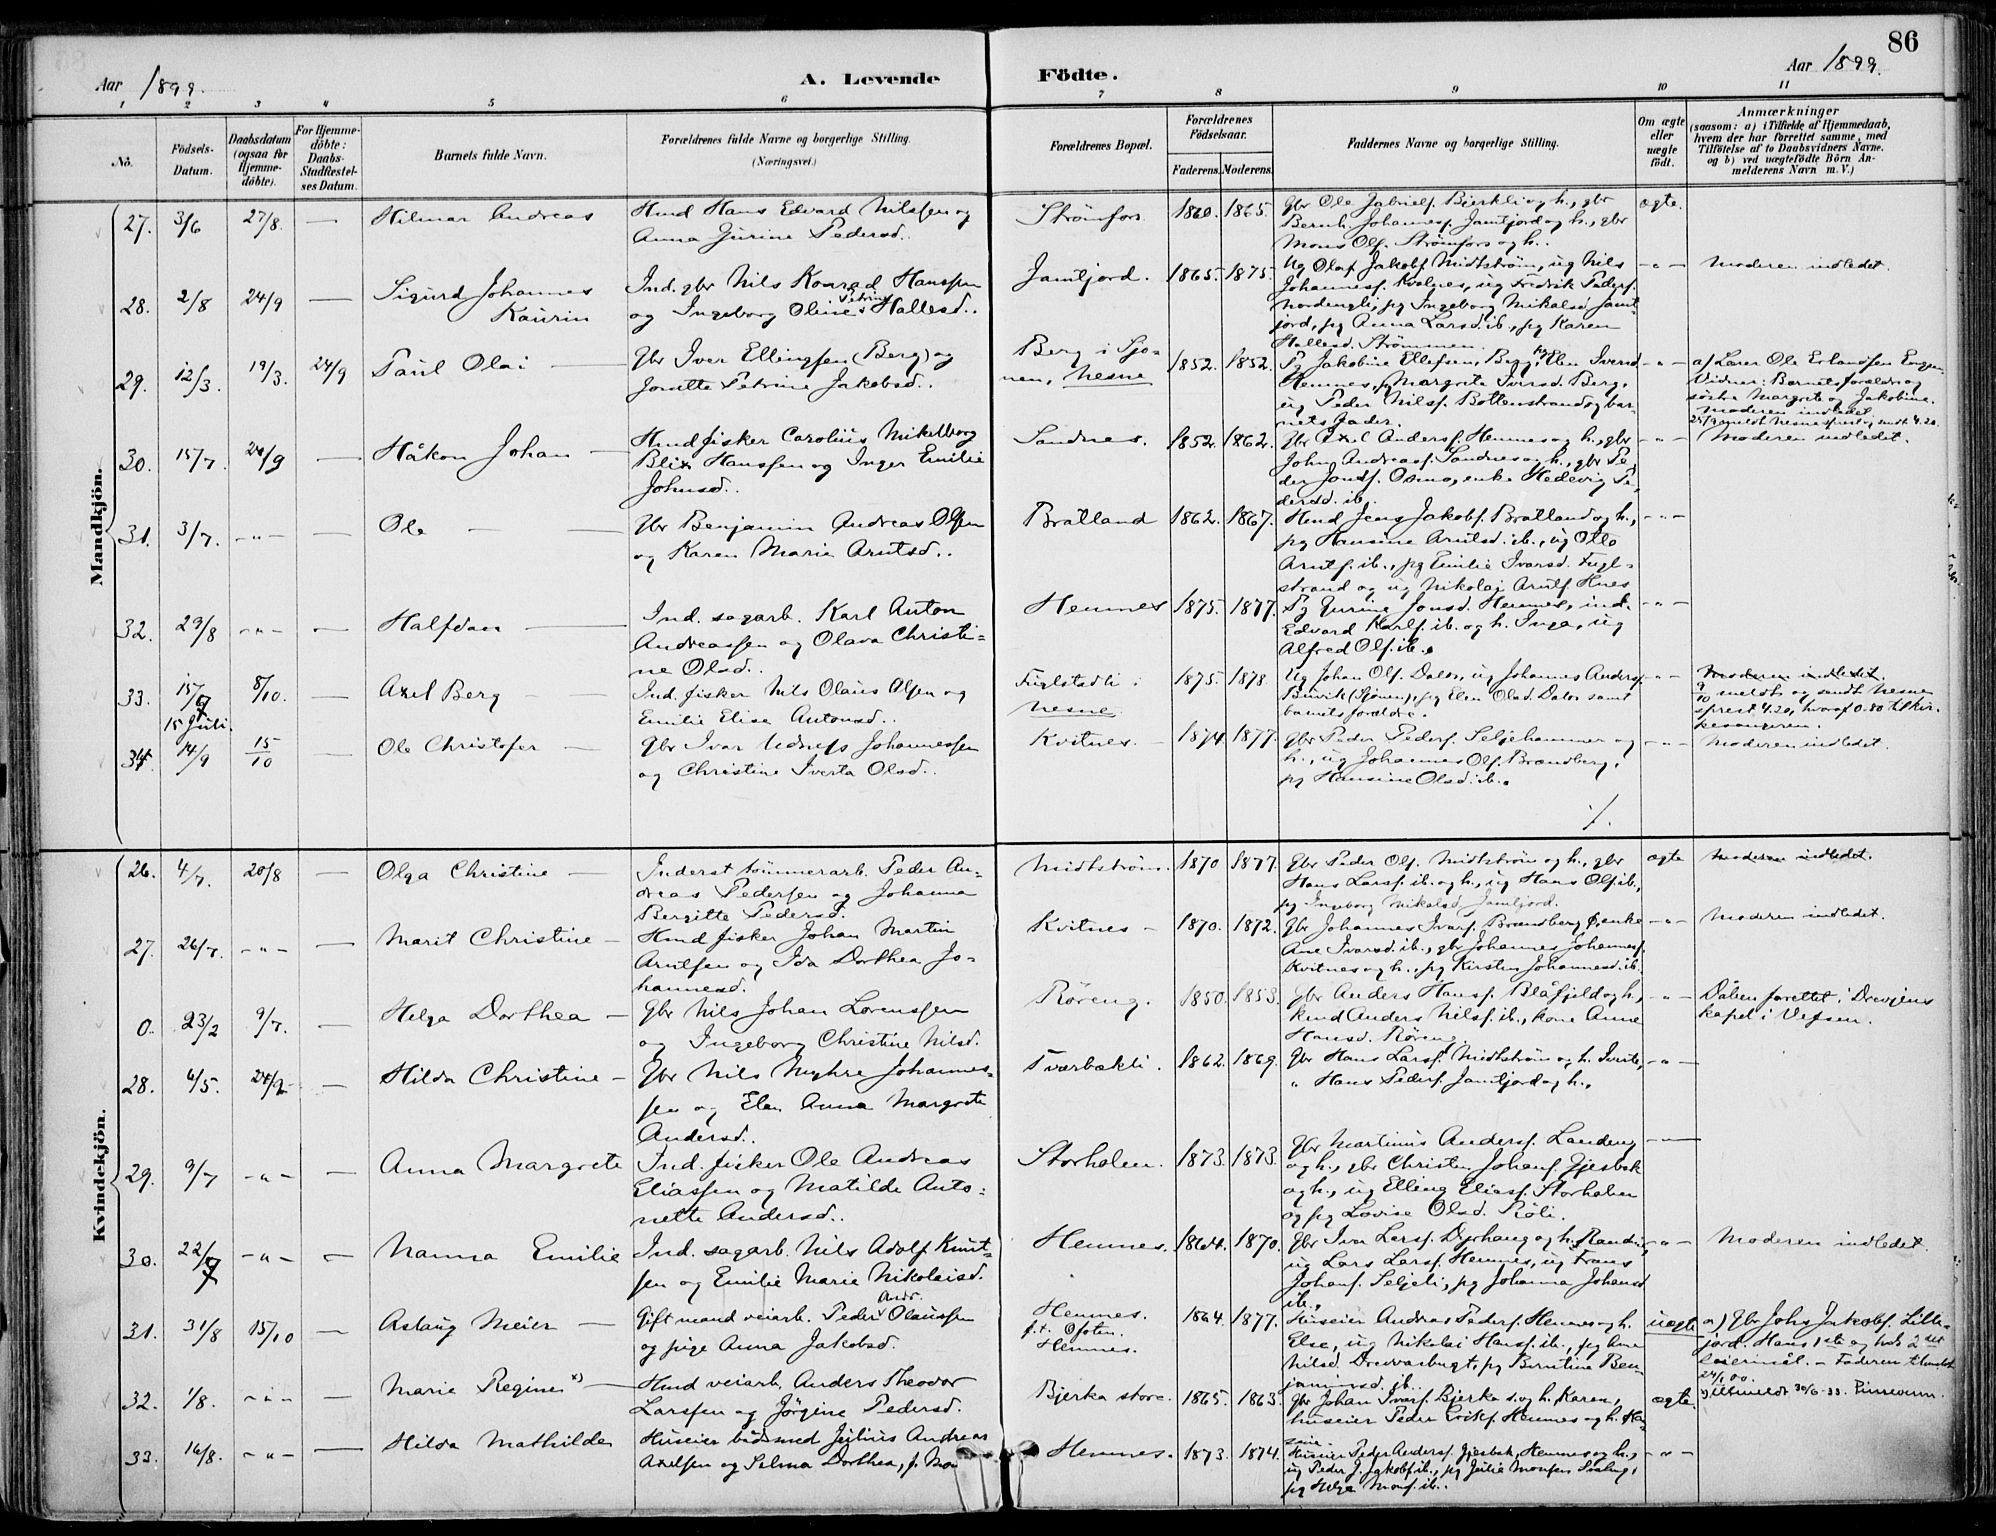 86
Aar 1899.
A. Levende Födte.
Aar 1899.
1 2 3 4 5 6 7 8 9 10 11
No.
Födsels-Datum.
Daabsdatum (ogsaa for Hjemme-döbte).
For Hjemme-döbte: Daabs-Stadfæstel-ses Datum.
Barnets fulde Navn.
Forældrenes fulde Navne og borgerlige Stilling.
(Næringsvei.)
Forældrenes Bopæl.
Forældrenes Födselsaar.
Faderens. Moderens.
Faddernes Navne og borgerlige Stilling.
Om ægte eller uægte födt.
Anmærkninger
(saasom: a) i Tilfælde af Hjemmedaab,
hvem der har forrettet samme, med
Tilföielse af to Daabsvidners Navne.
og b) ved uægtefödte Börn An-
melderens Navn m. V.)
Mandkjön.
27. 3/6 27/8. — Hilmar Andreas
Hmd Hans Edvard Nilssen og
Anna Jurine Pedersd.
Strømfors. 1860. 1865.
Gbr Ole Gabrielf. Bjerkli og h., gbr
Bernh. Johannesf. Jamtjord og h., gbr
Mons Olf. Strømfors og h..
ægte.
28. 2/8 24/9 — Sigurd Johannes
Kaurin
Ind. gbr Nils Konrad Hanssen
og Ingeborg Oline Petrine Hallesd..
Jamtjord. 1865. 1875.
Ug Olaf Jakobf. Midtstrøm, ug Nils
Johannesf. Kvalnes, ug Fredrik Pedersf.
Nordengli, pg Ingeborg Mikalsd. Jamt-
jord, pg Anna Larsd. ib., pg Karen
Hallesd. Strømmen.
- " - Moderen indledet.
29. 12/3. 19/3. 24/9 Paul Olai —
Gbr Iver Ellingsen (Berg) og
Jonette Petrine Jakobsd..
Berg i Sjo-
nen, Nesne 1852. 1852.
Pg Jakobine Ellefsen, Berg, pg Elen Iversd.
Hemnes, pg Margrete Iversd. Berg,
ug Peder Nilsf. Bottenstrand og bar-
nets fader.
- " - a) Lærer Ole Erlandsen Engen
Vidner: Barnets forældre og
søstre Margrete og Jakobine.
Moderen indledet.
25/9 meldt Nesne prest, sendt 4.20.
30. 15/7. 24/9 — Håkon Johan —
Hmd fisker Carolius Mikelborg
Blix Hanssen og Inger Emilie
Johnsd..
Sandnes. 1852. 1862.
Gbr Axel Andersf. Hemnes og h., gbr
John Andreasf. Sandnes og h., gbr Pe-
der Jonsf. Osmo, enke Hedevig Pe-
dersd. ib.
- " - Moderen indledet.
31. 3/7. - " - — Ole — —
Gbr Benjamin Andreas Olsen
og Karen Marie Arntsd..
Bratland 1862. 1867.
Hmd Jens Jakobf. Bratland og h.,
pg Hansine Arntsd. ib., ug Otto
Arntf. ib., pg Emilie Ivarsd. Fugl-
strand og ug Nikolai Arntf. Hnes
- " -
32. 29/8 - " - — Halfdan —
Ind. sagarb. Karl Anton
Andreassen og Olava Christi-
ne Olsd..
Hemnes 1875. 1877.
Pg Jurine Jonsd. Hemnes, ind.
Edvard Karlf. ib. og h. Inga, ug
Alfred Olf. ib.
- " -
33. 15/7
15 Juli. 8/10. — Axel Berg — —
Ind. fisker Nils Olaus Olsen og
Emilie Elise Antonsd..
Fuglstadli.
Nesne 1875. 1878.
Ug Johan Olf. Dalos, ug Johannes Andersf.
Buvik (Sjonen), pg Elen Olsd. Dalos samt
barnets forældre.
- " - Moderen indledet.
9/10 meldt og sendt Nesne
sprest 4.20, hvoraf 0.80 til kir-
kesangeren.
34. 14/9 15/10 — Ole Christofer —
Gbr Ivar Johannessen
og Christine Iverta Olsd..
Kvitnes. — 1874. 1877.
Gbr Peder Pedersf. Seljehammer og
h., ug Johannes Olf. Brændberg,
pg Hansine Olsd. ib.
- " - Moderen indledet.
./.
Kvindekjön.
26. 4/7. 20/8 — Olga Christine —
Inderst tømmerarb. Peder An-
dreas Pedersen og Johanna
Bergitte Pedersd.
Midtstrøm. 1870 1877.
Gbr Peder Olf. Midtstrøm og h., gbr
Hans Larsf. ib. og h., ug Hans Olf. ib.,
pg Ingeborg Mikalsd. Jamtjord.
ægte Moderen indledet.
27. 26/7. - " - — Marit Christine —
Hmd fisker Johan Martin
Arntsen og Ida Dorthea Jo-
hannesd.
Kvitnes — 1870. 1872.
Gbr Johannes Ivarf. Brændberg Ø, enke
Ane Ivarsd. ib., gbr Johannes Johannesf.
Kvitnes og h., pg Kirsten Johannesd. ib.
- " - Moderen indledet.
0. 23/2 9/7. — Helga Dorthea —
Gbr Nils Johan Lorenssen
og Ingeborg Christine Nilsd.
Røreng. 1850. 1853.
Gbr Anders Hansf. Blåfjeld og h.,
kmd Anders Nilsf. ib., kone Anne
Hansd. Røreng.
- " - Dåben forettet i Drevjens
kapel i Vefsen.
28. 6/5. 24/9 — Hilda Christine —
Gbr Nils Myhre Johannes-
sen og Elen Anna Margrete
Andersd..
Tvarbakli. 1862. 1869.
Gbr Hans Larsf. Midtstrøm og h. Iverte,
" Hans Pedersf. Jamtjord og h.,
- " -
29. 9/7 - " - — Anna Margrete
Ind. fisker Ole Andreas
Eliassen og Matilde Anto-
nette Andersd..
Storhalen. 1873. 1873.
Gbr Martinus Andersf. Landeng
og h., gbr Christen Johanf. Gjesbak
og h., ug Elling Eliasf. Storhalen
og pg Lovise Olsd. Røli.
30. 22/7 - " - — Nanna Emilie
Ind. sagarb. Nils Adolf Knut-
sen og Emilie Marie Nikolaisd.
Hemnes. 1864. 1870.
Gbr Ivar Larsf. Dyrhaug og h. Randine,
ug Lars Larsf. Hemnes, ug Frans
Johanf. Seljeli, pg Johanna Johansd.
ib.,
- " - Moderen indledet.
31. 31/8 15/10 — Aslaug Meier —
Gift mand veiarb. Peder Andr. Olaussen
og pige Anna Jakobsd.
Hemnes.
f.t. Ofoten.
Hemnes. 1864. 1877.
Huseier Andreas Pedersf. Hemnes og h.
Else, ug Nikolai Hansf. ib., pg Ane
Nilsd. Drevvasbugt, pg Berntine Ben-
jaminsd. ib.
uægte a) Gbr Johs Jakobf. Lille-
jord. Hans 1ste og hds 2det
leiermål. — Faderen tilmeldt
24/1 00.
32. 1/8. - " - — Marie Regine x) —
Hmd veiarb. Anders Theodor
Larssen og Jørgine Pedersd.
Bjerka store. 1865. 1863.
Gbr Johan Ivarf. Bjerka s. og h. Karen,
huseier Peder Erikf. Hemnes og h. Han-
sine.
ægte x) Utmeldt 30/6-33. Pinseven.
33. 16/8. - " - — Hilda Mathilde
Huseier bådsmed Julius Andreas
Axelsen og Selma Dorthea, f. Mo
Hemnes. 1873. 1874.
Huseier Peder Andersf. Gjesbak, Hemnes og h.,
ug Peder J. Jakobf. ib., pg Julie Monsen
pg Helga Monsf. ib..
- " -